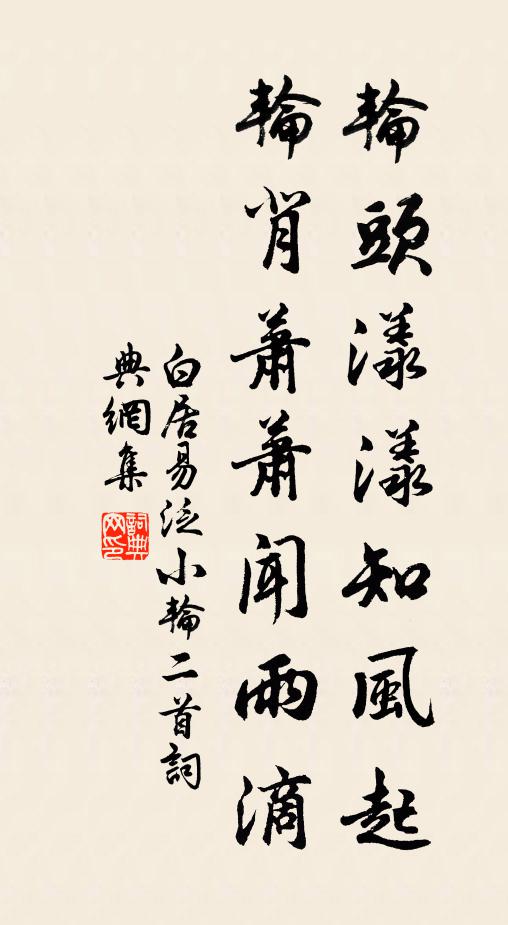 輪頭漾漾知風起
輪背蕭蕭聞雨滴
白居易泛小輪二首詞
典網集
詞典網印